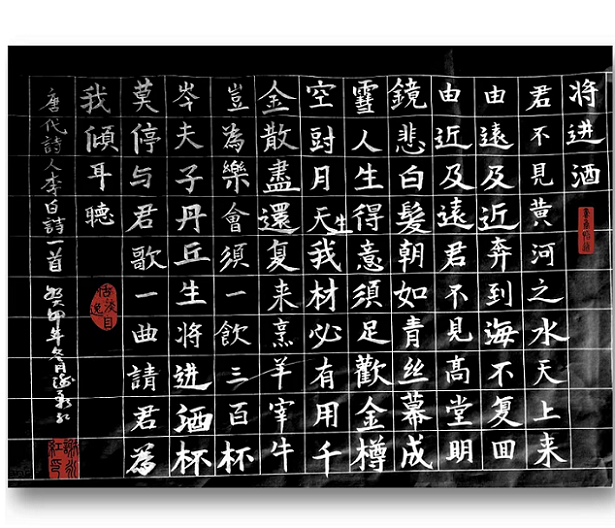 将进酒
君不見黄河之水天上来
由遠及近奔到海不复回
由近及遠君不見高堂明
鏡悲白髮朝如青丝幕成
雪人生得意須足歡金樽
空对月天生我材必有用千
金散盡還复来烹羊宰牛
豈為樂會須一飲三百杯
岑夫子丹丘生将进酒杯
莫停与君歌一曲請君為
我傾耳聽
唐代詩人李白詩一首